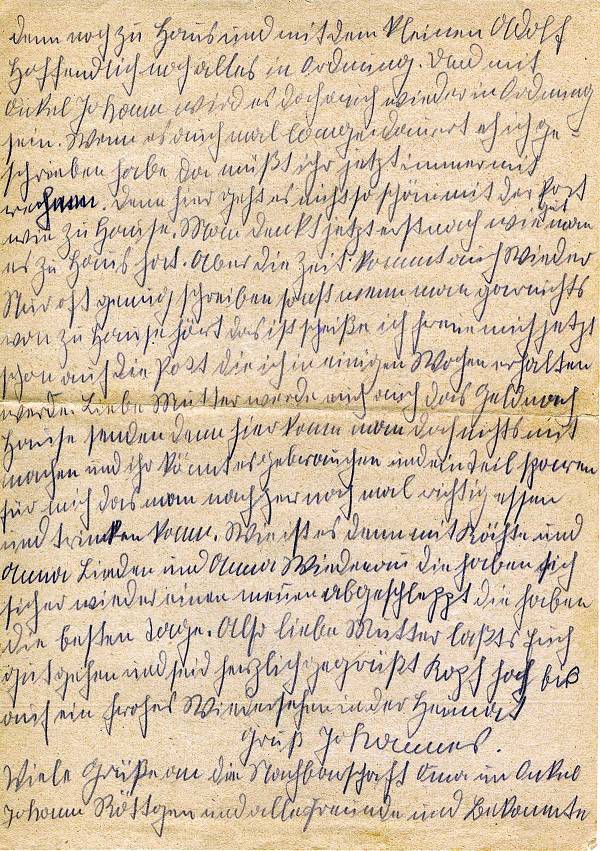 denn noch zu Haus und mit dem kleinen Adolf
Hoffendlich noch alles in Ordnung. Und mit
Onkel Johann wird es doch auch wieder in Ordnung
sein. Wenn es auch mal lange dauert eh ich ge-
schrieben habe da müßt ihr jetzt immer mit
rechnen. Denn hier geht es nicht so schön mit der Post
wie zu Hause. Man denkt jetzt erst nach wie gut man
es zu Haus hat. Aber die Zeit kommt auch wieder
Nur oft genug schreiben sonst wenn man gar nichts
von zu Hause hört das ist scheiße ich freue mich jetzt
schon auf die Post die ich in einigen Wochen erhalten
werde. Liebe Mutter werde euch auch das Geld nach
Hause senden denn hier kann man doch nichts mit
machen und ihr könnt es gebrauchen und ein teil sparen
für mich das man nachher noch mal richtig essen
und trinken kann. Wie ist es denn mit Käthe und
Anna Lieden und Anna Wiedenau die haben sich
sicher wieder einen neuen abgeschleppt die haben
die besten Tage. Also liebe Mutter laßts Euch
gut gehen und seid herzlich gegrüßt Kopf hoch bis
auf ein frohes Wiedersehen in der Heimat
Gruß Johannes.
Viele Grüße an die Nachbarschaft Oma un Onkel
Johann Röttgen und alle Freunde und Bekannte